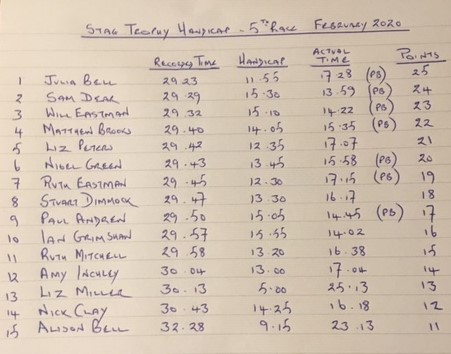 STAG TROPHY HANDICAP - 5TH RACE FEBRUARY 2020
RECORDED TIME HANDICAP ACTUAL TIME POINTS
1 JULIA BELL 29.23 11.55 17.28 (PB) 25
2 SAM DEAR 29.29 15.30 13.59 (PB) 24
3 WILL EASTMAN 29.32 15.10 14.22 (PB) 23
4 MATTHEW BROOKS 29.40 14.05 15.35 (PB) 22
5 LIZ PETERS 29.42 12.35 17.07 21
6 NIGEL GREEN 29.43 13.45 15.58 (PB) 20
7 RUTH EASTMAN 29.45 12.30 17.15 (PB) 19
8 STUART DIMMOCK 29.47 13.30 16.17 18
9 PAUL ANDREW 29.50 15.05 14.45 (PB) 17
10 IAN GRIMSHAW 29.57 15.55 14.02 16
11 RUTH MITCHELL 29.58 13.20 16.38 15
12 AMY INCHLEY 30.04 13.00 17.04 14
13 LIZ MILLER 30.13 5.00 25.13 13
14 NICK CLAY 30.43 14.25 16.18 12
15 ALISON BELL 32.28 9.15 23.13 11